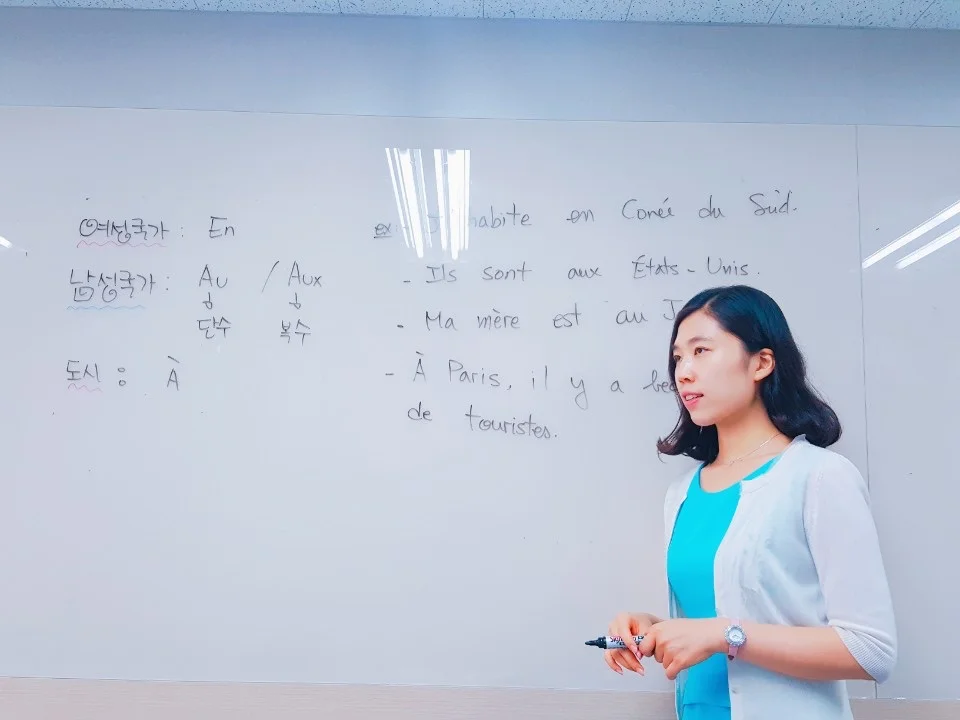 여성국가 : En
남성국가 : Au / Aux
단수 복수
도시 : À
ex. J'habite en Corée du Sud.
- Ils sont aux États-Unis.
- Ma mère est au J
- À Paris, il y a bea
de touristes.